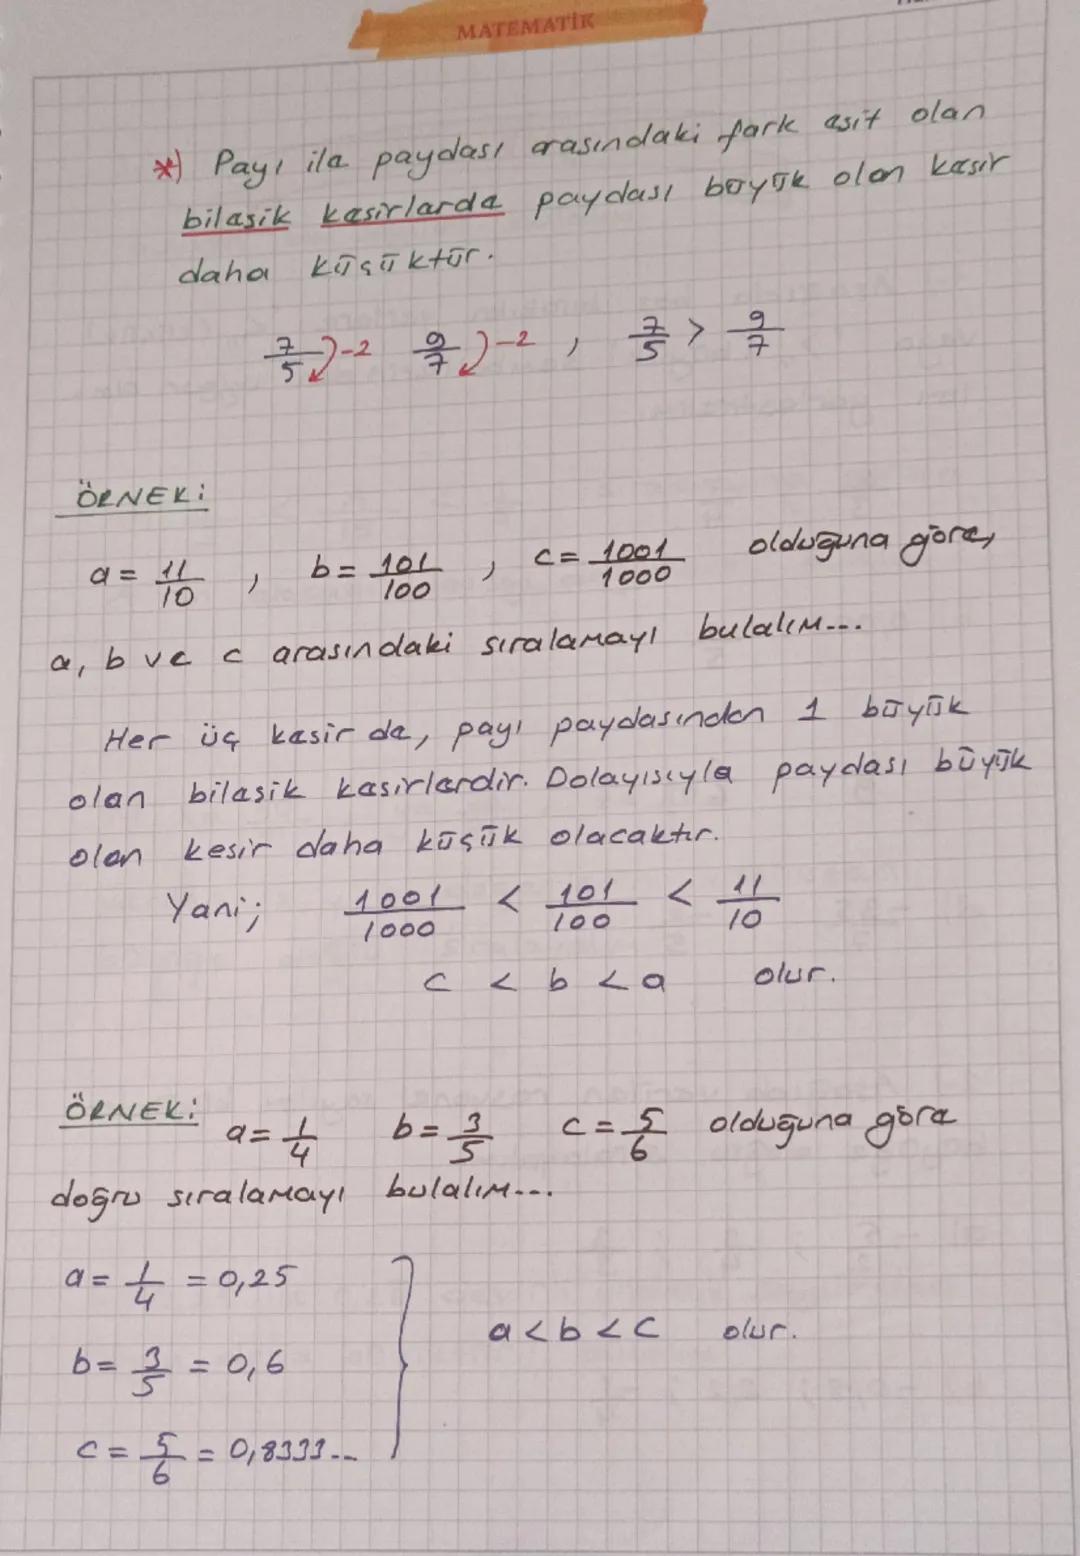 MATEMATİK
*) Payı ile paydası arasındaki fark eşit olan
bileşik kesirlerde paydası büyük olan kesir
daha küçüktür.
7/5 -2 9/7 -2 , 7/5 > 9/7
ÖRNEK:
a = 11/10 , b = 101/100 , c = 1001/1000 olduğuna göre,
a, b ve c arasındaki sıralamayı bulalım...
Her üç kesir de, payı paydasından 1 büyük
olan bileşik kesirlerdir. Dolayısıyla paydası büyük
olan kesir daha küçük olacaktır.
Yani; 1001/1000 < 101/100 < 11/10
c < b < a olur.
ÖRNEK: a = 1/4 b = 3/5 c = 5/6 olduğuna göre
doğru sıralamayı bulalım...
a = 1/4 = 0,25
a < b < c olur.
b = 3/5 = 0,6
c = 5/6 = 0,8333...